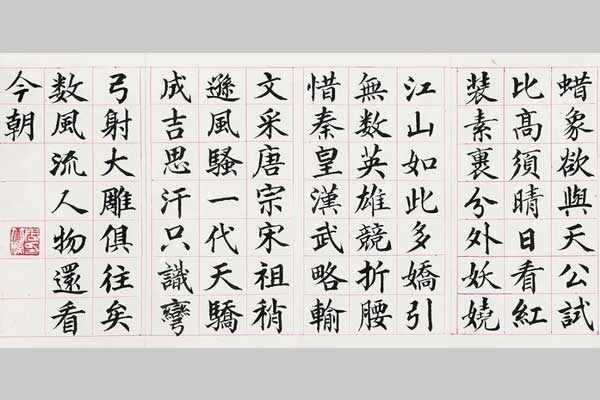 蜡象欲與天公試
比高須晴日看紅
裝素裹分外妖嬈
江山如此多嬌引
無数英雄競折腰
惜秦皇漢武略輸
文采唐宗宋祖稍
遜風騷一代天驕
成吉思汗只識彎
弓射大雕俱往矣
数風流人物還看
今朝